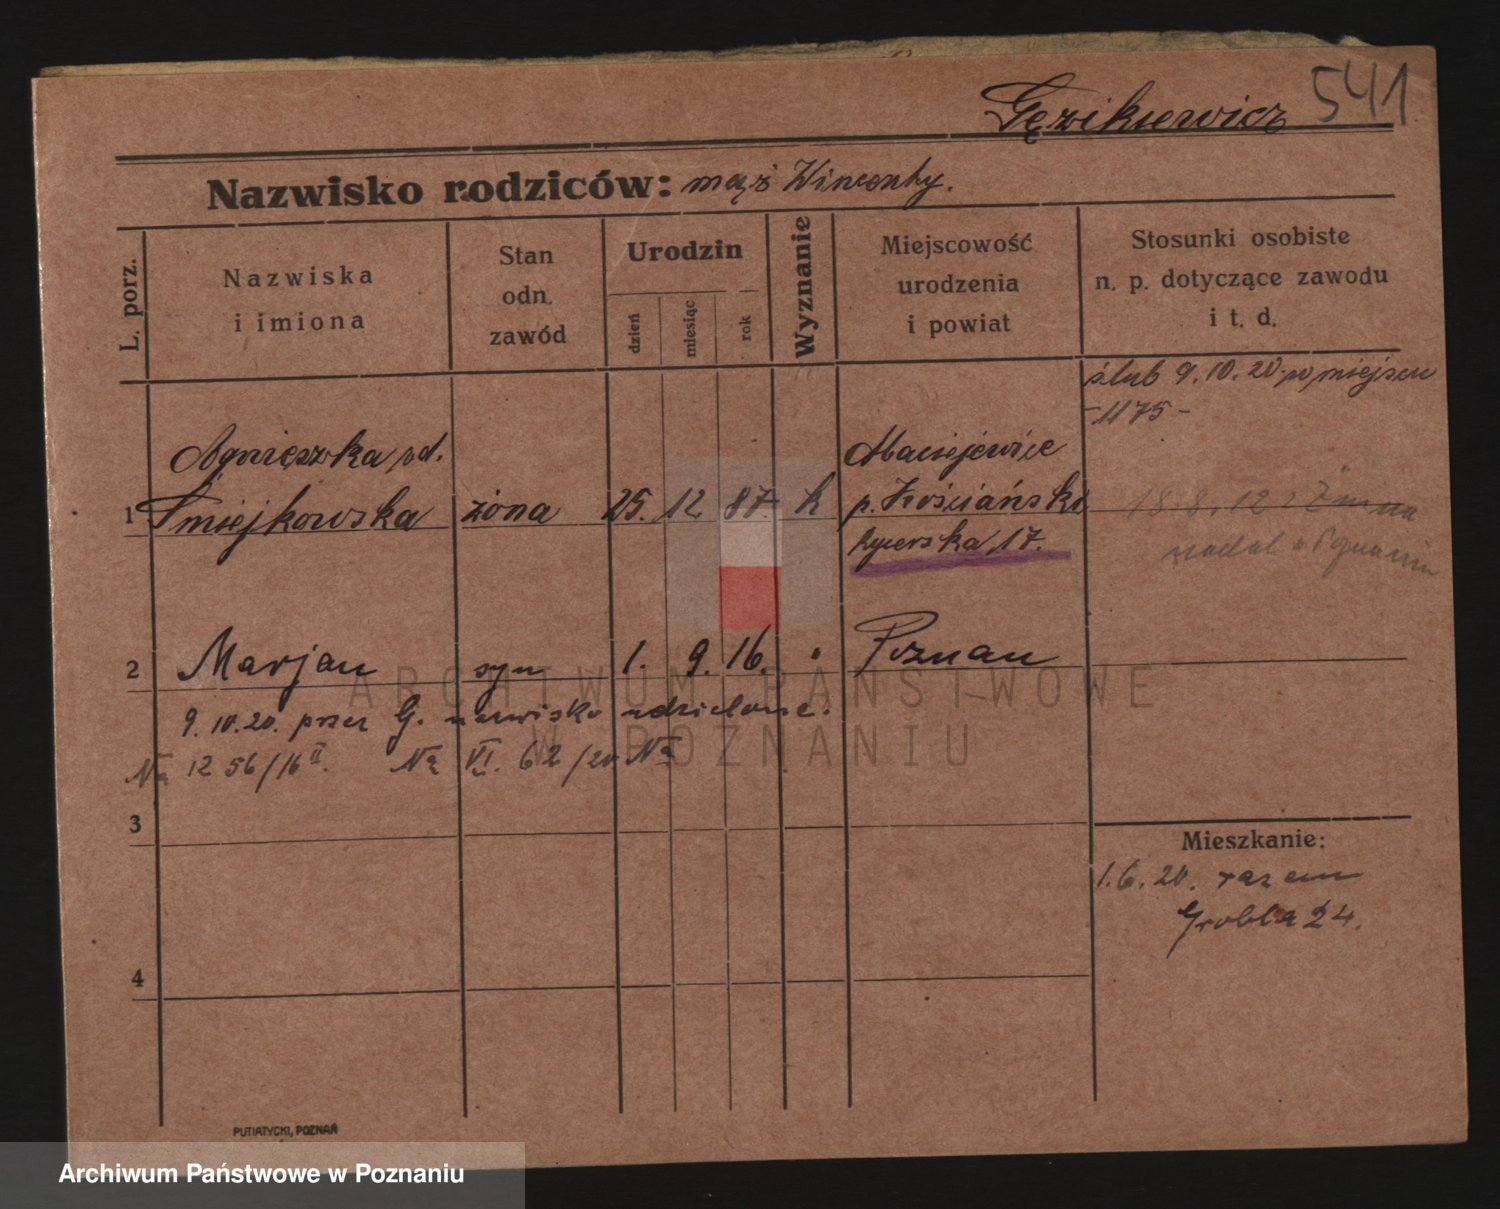 541
Gęzikiewicz
Nazwisko rodziców: mąż Wincenty.
L. porz.
Nazwiska
i imiona
Stan
odn.
zawód
Urodzin
dzień
miesiąc
rok
Wyznanie
Miejscowość
urodzenia
i powiat
Stosunki osobiste
n. p. dotyczące zawodu
i t. d.
ślub 9.10.20. w miejscu
-1175-
Agnieszka
1 Śmiejkowska żona 25. 12. 87. k
Maciejewice
p. Kościański
Rycerska 17.
18.8.12
nadal w Poznaniu
2 Marjan syn 1. 9. 16. " Poznan
9.10.20. przez G. nazwisko udzielone.
Na 1256/16 II. Na VI. 62/20 Na
3
4
Mieszkanie:
1.6.20. razem
Grobla 24.
PUTIATYCKI, POZNAŃ
ARCHIWUM PAŃSTWOWE
W POZNANIU
Archiwum Państwowe w Poznaniu